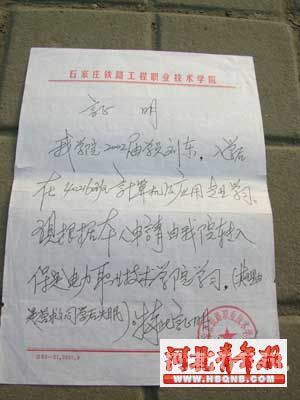 石家庄铁路工程职业技术学院
证 明
我学院2002届学生刘东，入学后
在40216班计算机及应用专业学习。
现根据本人申请由我院转入
保定电力职业技术学院学习。
特此证明
河北青年报
WWW.HSQNB.COM